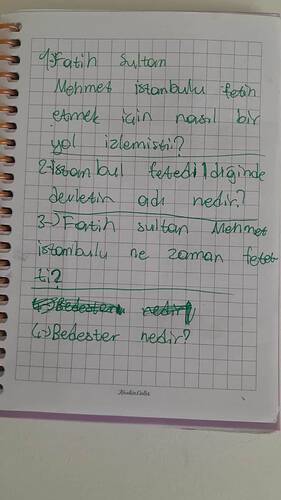 1-)Fatih Sultan
Mehmet istanbulu fetih
etmek için nasıl bir
yol izlemişti?
2-İstanbul fetedildiğinde
devletin adı nedir?
3-)Fatih sultan Mehmet
istanbulu ne zaman fetet-
ti?
4-)Bedesten nedir
4-)Bedester nedir?